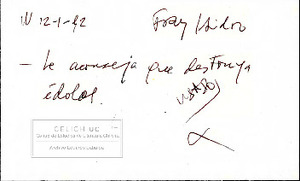 IV 12-1-92 Fray Isidro
- le aconseja que destruya
ídolos.
USADO
CELICH UC